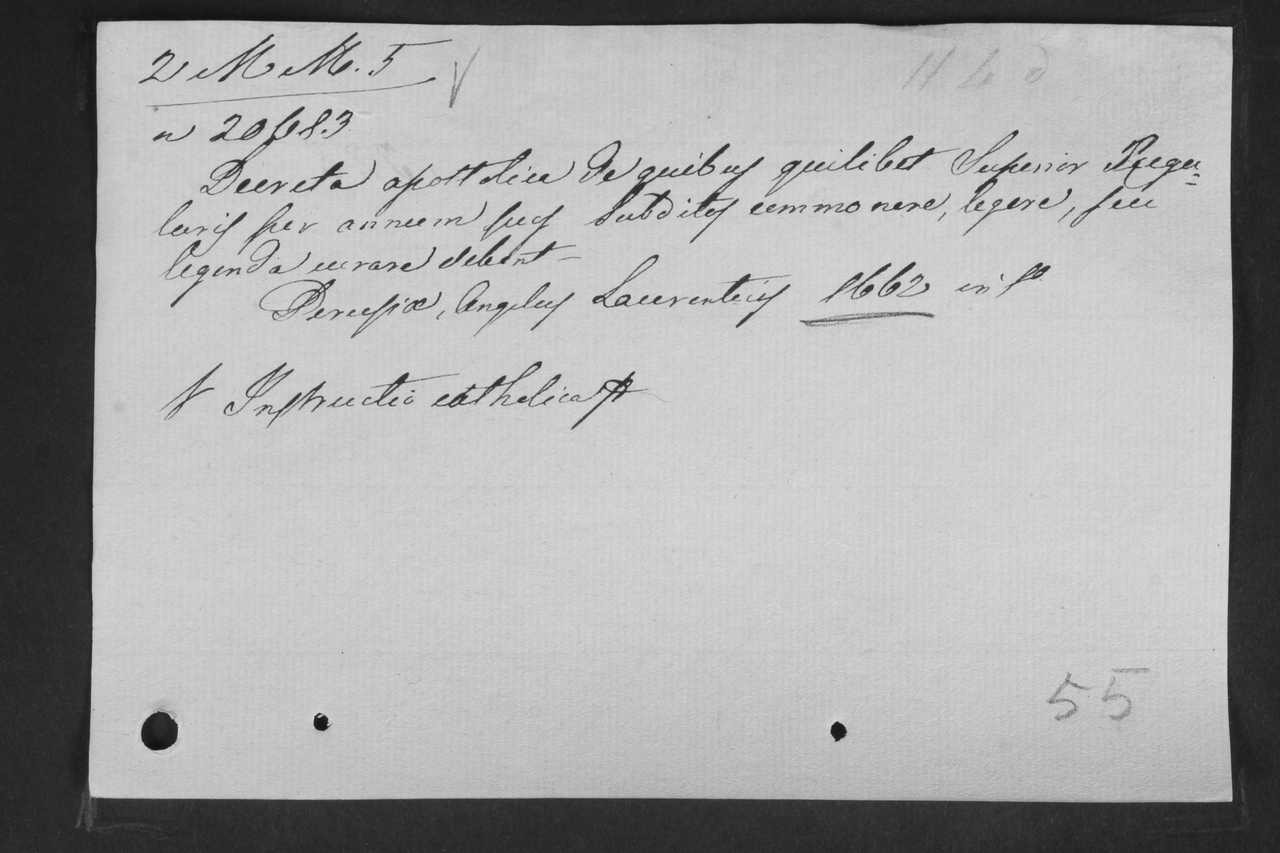 2 M M. 5
H 4 d
n 20683
Decreta apostolica de quibus quilibet Superior Regu=
laris per annum suos Subditos commonere, legere, seu
legenda curare debent
Perusiæ, Angelus Laurentius 1662 in f°
V Instructio catholica
55